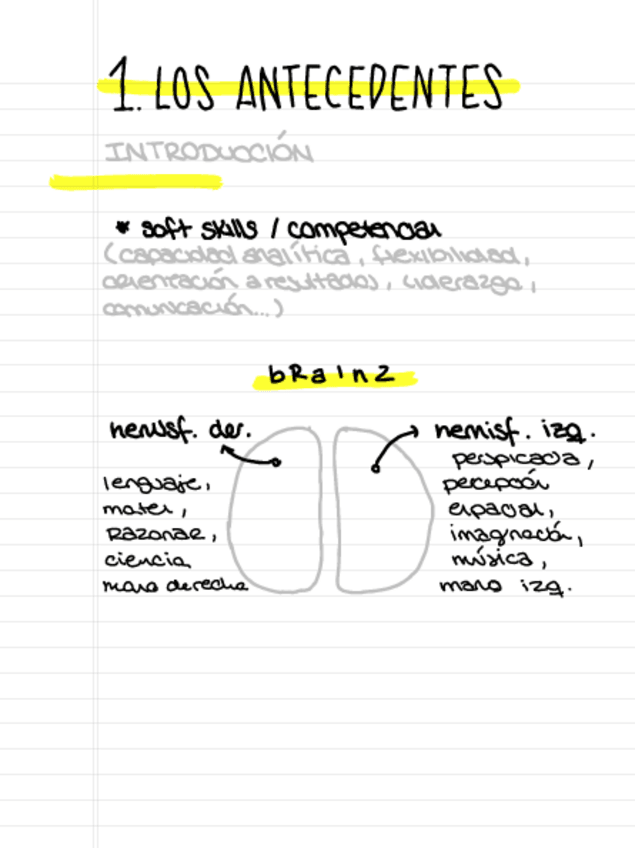 1. LOS ANTECEDENTES
INTRODUCCIÓN
* soft skills / competencias
(capacidad analítica, flexibilidad,
orientación a resultados, liderazgo,
comunicación...)
bRaInz
hemisf. der.
lenguaje,
mates,
Razonar,
ciencia
mano derecha
hemisf. izq.
perspicacia,
percepción
espacial,
imaginación,
música,
mano izq.